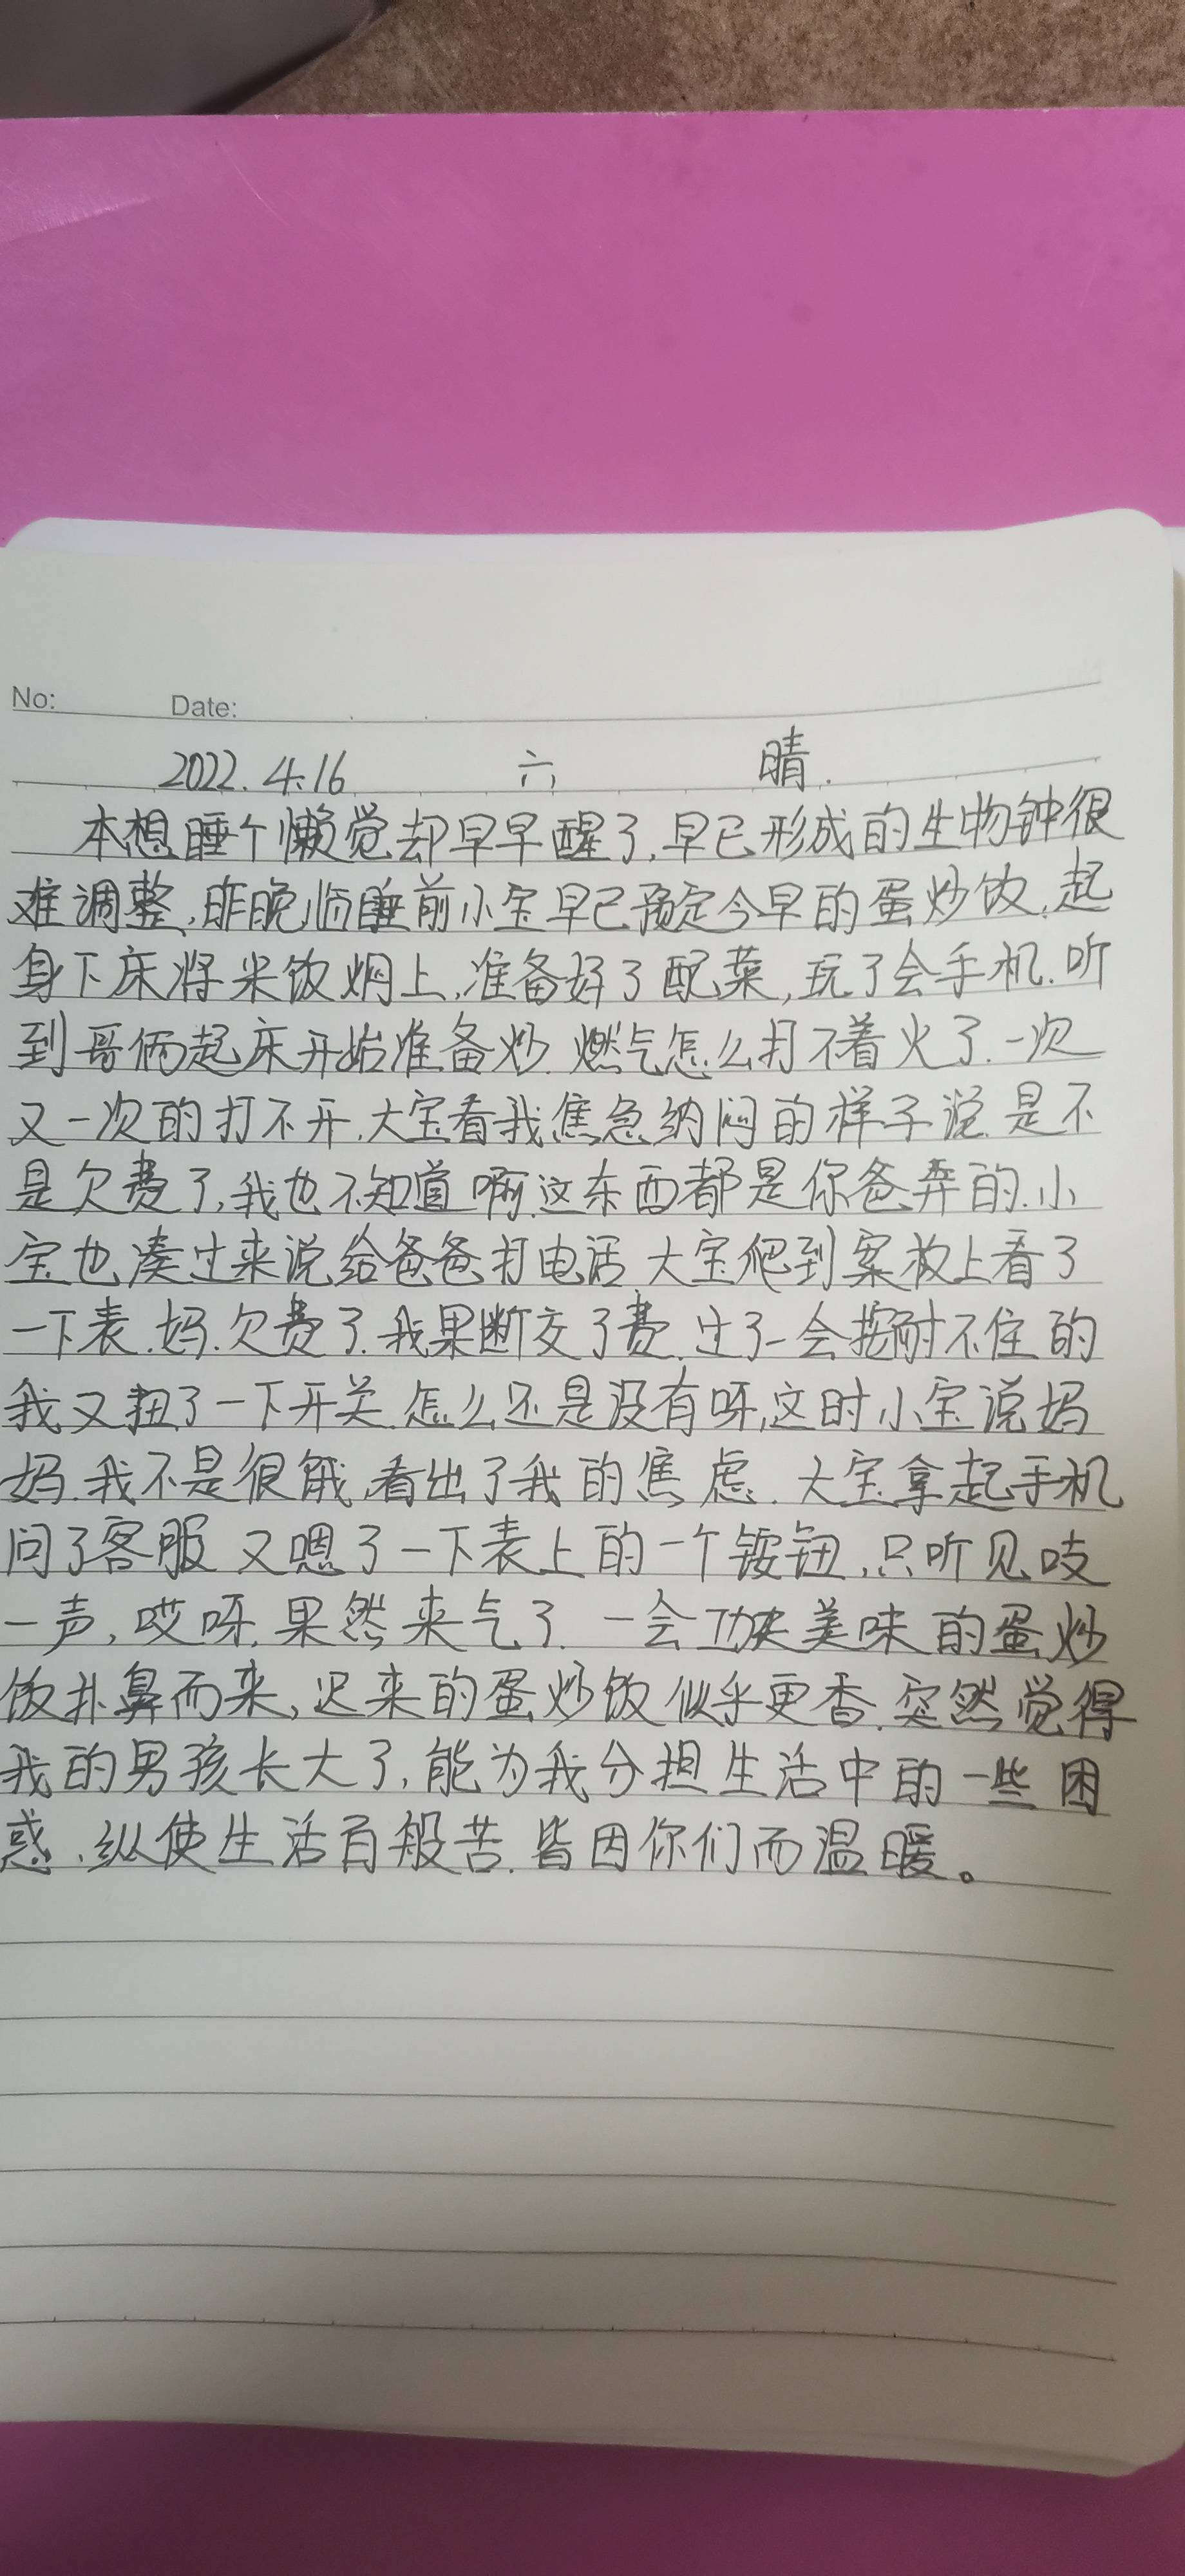 No: Date:
2022.4.16 六 晴.
本想睡个懒觉却早早醒了,早已形成的生物钟很
难调整,昨晚临睡前小宝早已预定今早的蛋炒饭.起
身下床将米饭焖上,准备好了配菜,玩了会手机.听
到哥俩起床开始准备炒.燃气怎么打不着火了.一次
又一次的打不开,大宝看我焦急纳闷的样子说.是不
是欠费了,我也不知道啊.这东西都是你爸弄的.小
宝也凑过来说给爸爸打电话 大宝爬到案板上看了
一下表.妈.欠费了.我果断交了费.过了一会按耐不住的
我又扭了一下开关.怎么还是没有呀,这时小宝说妈
妈.我不是很饿,看出了我的焦虑.大宝拿起手机
问了客服 又嗯了一下表上的一个铵钮,只听见吱
一声,哎呀.果然来气了.一会功夫美味的蛋炒
饭扑鼻而来,迟来的蛋炒饭似乎更香.突然觉得
我的男孩长大了,能为我分担生活中的一些困
惑.纵使生活百般苦.皆因你们而温暖。